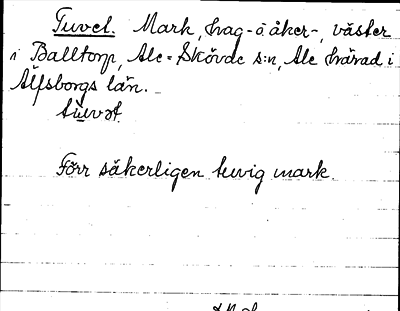 Tuvet. Mark, hag- o åker-, väster
i Balltorp, Ale-Skövde s:n, Ale härad i
Älfsborgs län.
Förr säkerligen tuvig mark.